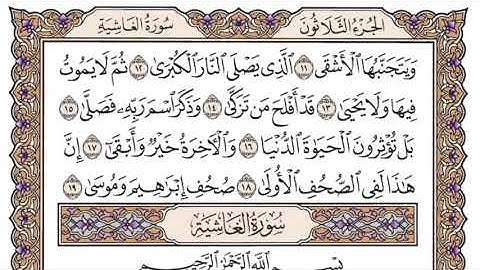 الجزء الثلاثون سورة الغاشية
وَيَتَجَنَّبُهَا ٱلْأَشْقَى ١١ ٱلَّذِى يَصْلَى ٱلنَّارَ ٱلْكُبْرَىٰ ١٢ ثُمَّ لَا يَمُوتُ
فِيهَا وَلَا يَحْيَىٰ ١٣ قَدْ أَفْلَحَ مَن تَزَكَّىٰ ١٤ وَذَكَرَ ٱسْمَ رَبِّهِۦ فَصَلَّىٰ ١٥
بَلْ تُؤْثِرُونَ ٱلْحَيَوٰةَ ٱلدُّنْيَا ١٦ وَٱلْـَٔاخِرَةُ خَيْرٌ وَأَبْقَىٰٓ ١٧ إِنَّ
هَـٰذَا لَفِى ٱلصُّحُفِ ٱلْأُولَىٰ ١٨ صُحُفِ إِبْرَٰهِيمَ وَمُوسَىٰ ١٩
سورة الغاشية
بِسْمِ ٱللَّهِ ٱلرَّحْمَـٰنِ ٱلرَّحِيمِ